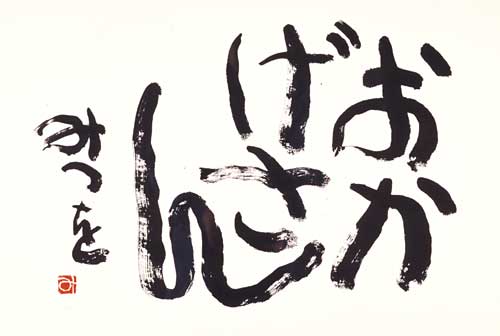 おか
げさ
ん
みつを
み